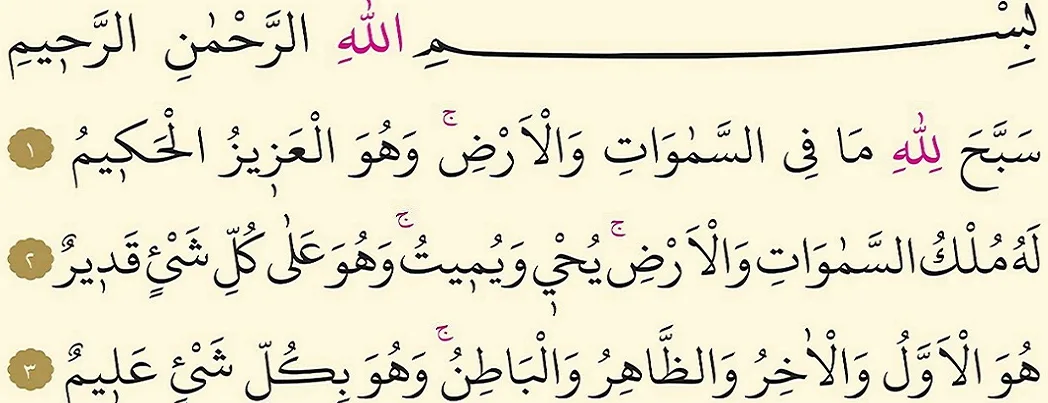 بِسْمِ اللّٰهِ الرَّحْمٰنِ الرَّح۪يمِ
سَبَّحَ لِلّٰهِ مَا فِى السَّمٰوَاتِ وَالْاَرْضِۚ وَهُوَ الْعَز۪يزُ الْحَك۪يمُ ١
لَهُ مُلْكُ السَّمٰوَاتِ وَالْاَرْضِۚ يُحْي۪ وَيُم۪يتُۚ وَهُوَ عَلٰى كُلِّ شَيْئٍ قَد۪يرٌ ٢
هُوَ الْاَوَّلُ وَالْاٰخِرُ وَالظَّاهِرُ وَالْبَاطِنُۚ وَهُوَ بِكُلِّ شَيْئٍ عَل۪يمٌ ٣